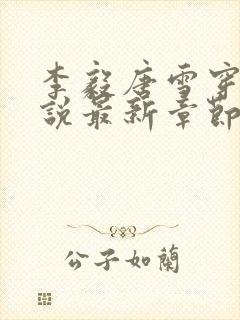 李毅唐雪穿
說最新章節
公子如蘭